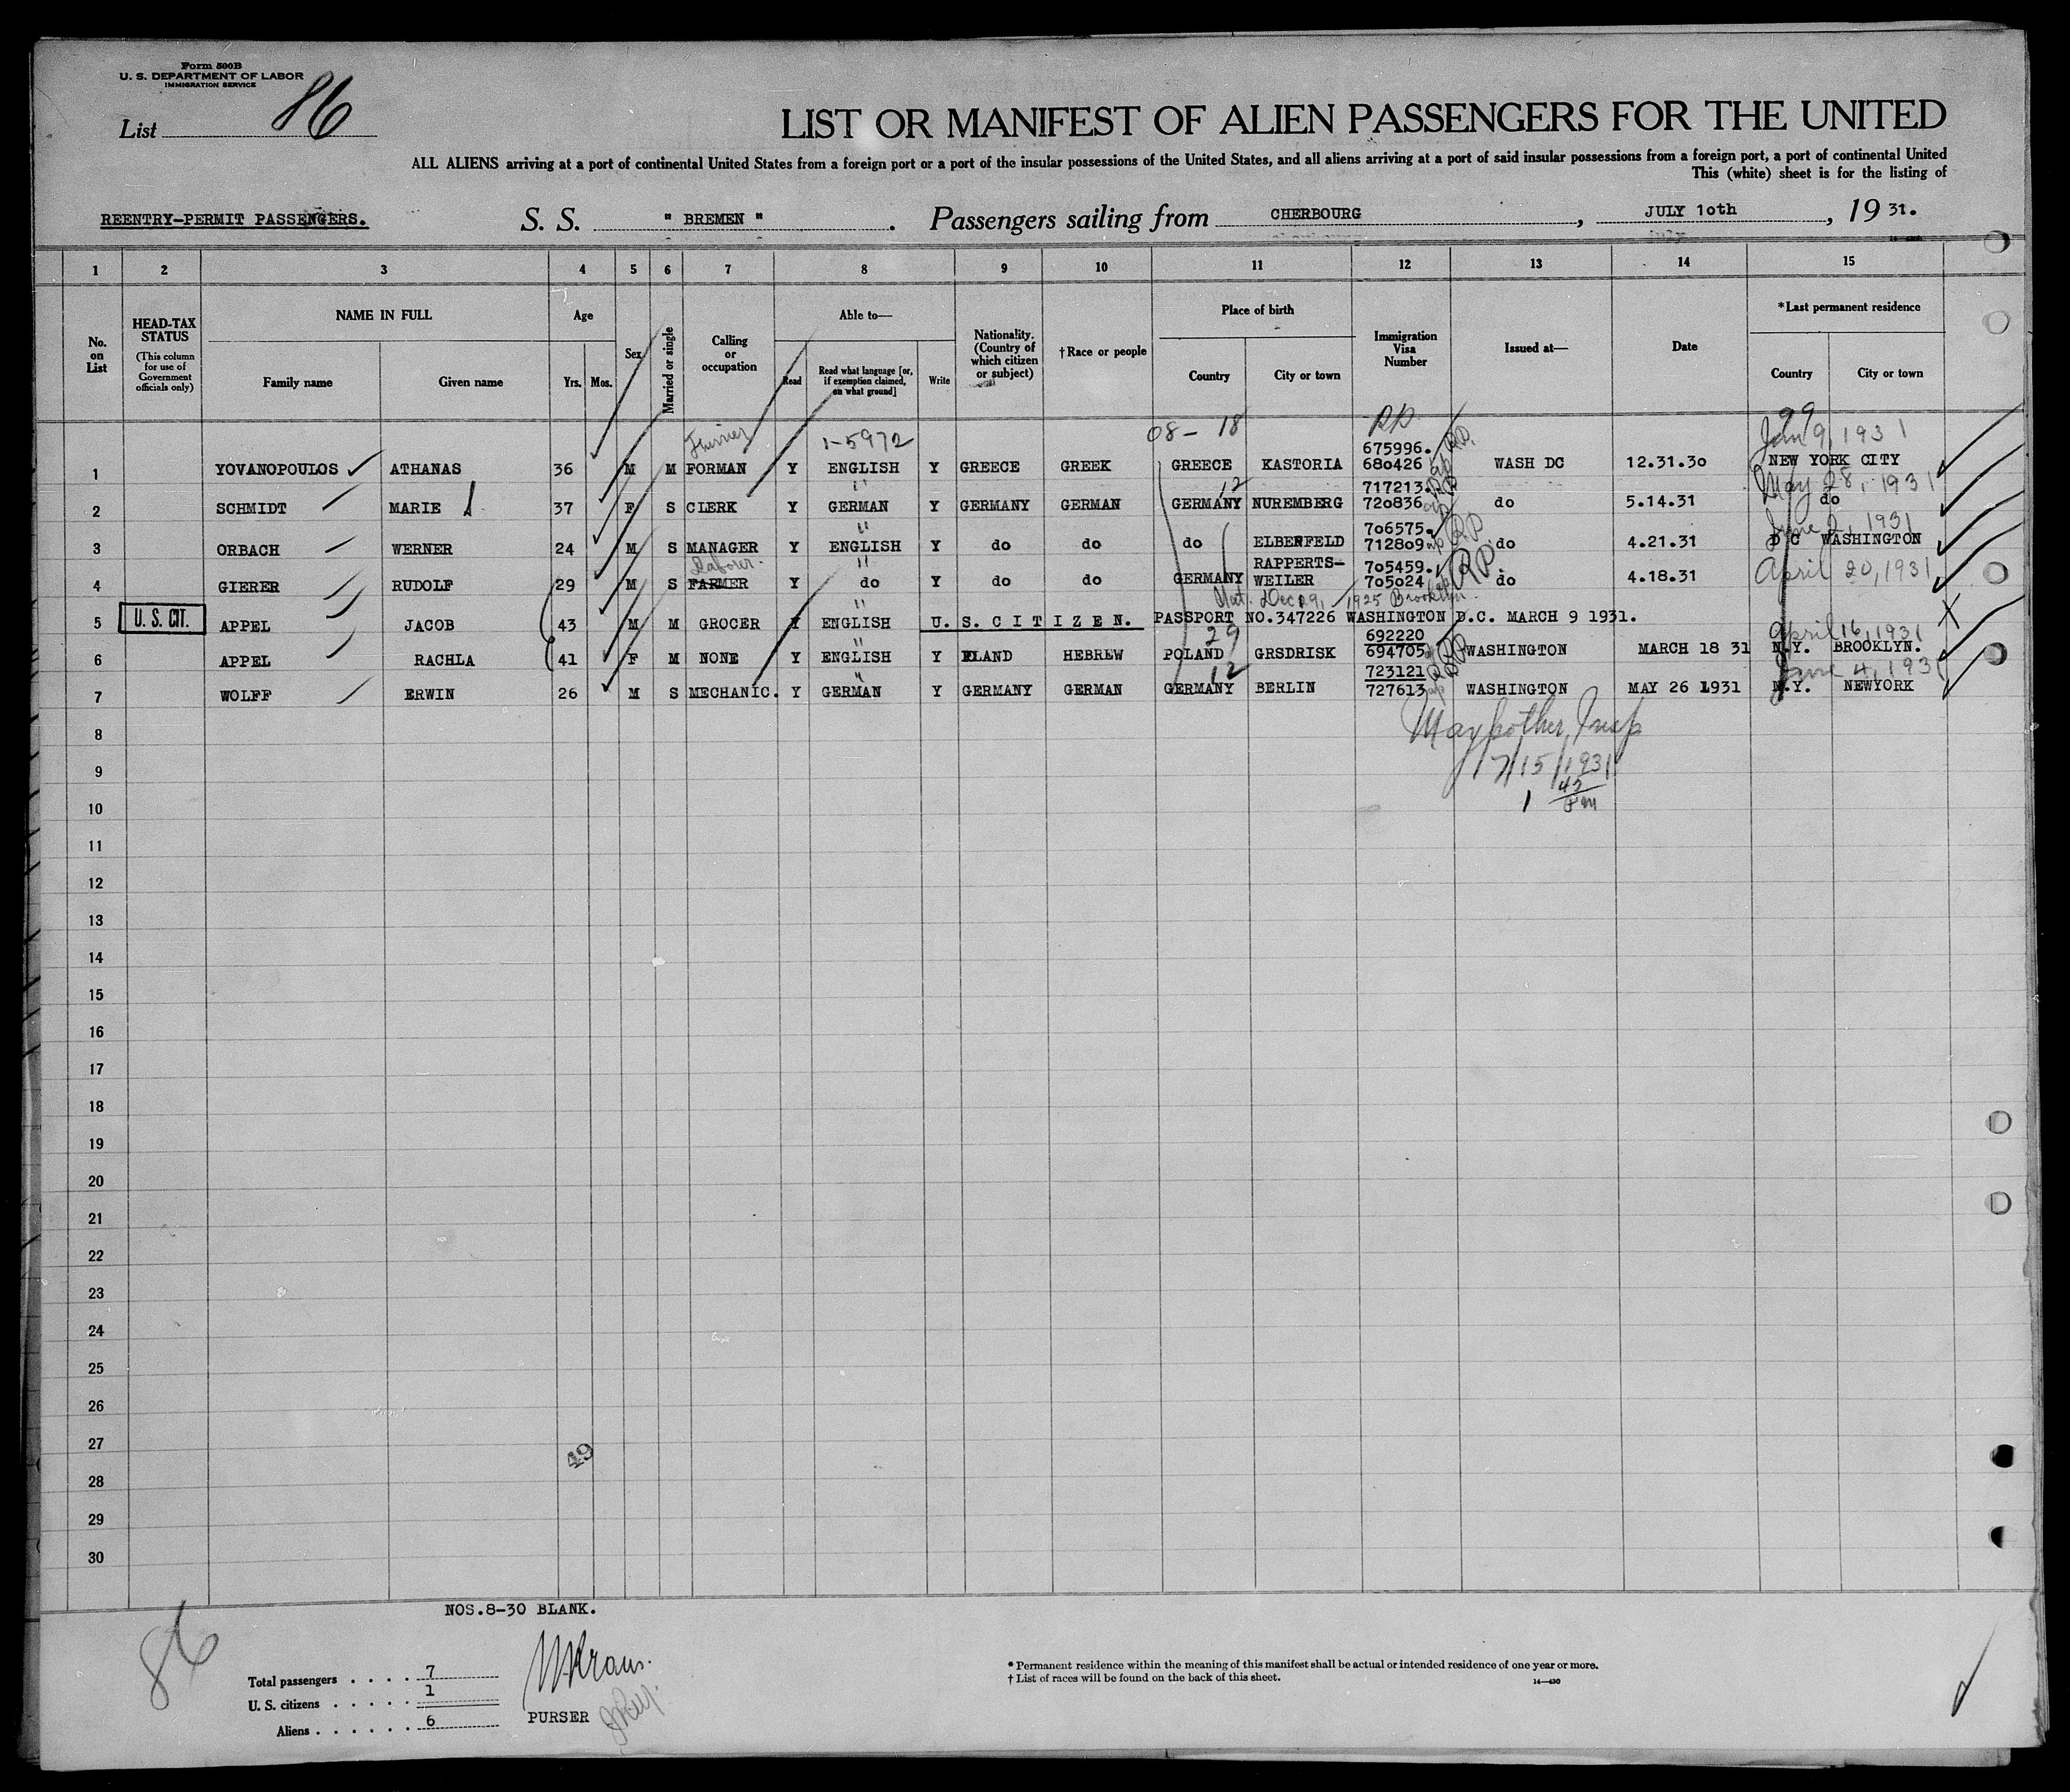 Form 500B
U. S. DEPARTMENT OF LABOR
IMMIGRATION SERVICE
List 86
LIST OR MANIFEST OF ALIEN PASSENGERS FOR THE UNITED
ALL ALIENS arriving at a port of continental United States from a foreign port or a port of the insular possessions of the United States, and all aliens arriving at a port of said insular possessions from a foreign port, a port of continental United
This (white) sheet is for the listing of
REENTRY-PERMIT PASSENGERS. S. S. " BREMEN " . Passengers sailing from CHERBOURG , JULY 10th , 19 31.
1 2 3 4 5 6 7 8 9 10 11 12 13 14 15
No. on List
HEAD-TAX STATUS
(This column for use of Government officials only)
NAME IN FULL
Family name Given name
Age
Yrs. Mos.
Sex
Married or single
Calling or occupation
Able to—
Read
Read what language [or, if exemption claimed, on what ground]
Write
Nationality. (Country of which citizen or subject)
†Race or people
Place of birth
Country City or town
Immigration Visa Number
Issued at—
Date
*Last permanent residence
Country City or town
1-5972 08- 18 RP. 99
675996. RP. Jan 9, 1931
1 YOVANOPOULOS ATHANAS 36 M M FORMAN Y ENGLISH Y GREECE GREEK GREECE KASTORIA 680426 WASH DC 12.31.30 NEW YORK CITY
" 12 717213. May 28, 1931
2 SCHMIDT MARIE 37 F S CLERK Y GERMAN Y GERMANY GERMAN GERMANY NUREMBERG 720836 do 5.14.31 do
" 706575. RP June 2, 1931
3 ORBACH WERNER 24 M S MANAGER Y ENGLISH Y do do do ELBERFELD 712809 do 4.21.31 D C WASHINGTON
Laborer. " RAPPERTS- 705459. RP. April 20, 1931
4 GIERER RUDOLF 29 M S FARMER Y do Y do do GERMANY WEILER 705024 do 4.18.31
" Nat. Dec 29, 1925 Brooklyn.
U. S. CIT.
5 APPEL JACOB 43 M M GROCER Y ENGLISH U. S. C I T I Z E N. PASSPORT NO.347226 WASHINGTON D.C. MARCH 9 1931. X
" 29 692220 RP April 16, 1931
6 APPEL RACHLA 41 F M NONE Y ENGLISH Y POLAND HEBREW POLAND GRSDRISK 694705 WASHINGTON MARCH 18 31 N.Y. BROOKLYN.
" 12 723121 RP June 4, 1931
7 WOLFF ERWIN 26 M S MECHANIC. Y GERMAN Y GERMANY GERMAN GERMANY BERLIN 727613 WASHINGTON MAY 26 1931 N.Y. NEWYORK
8
9 7/15/1931
10
11
12
13
14
15
16
17
18
19
20
21
22
23
24
25
26
27
49
28
29
30
NOS.8-30 BLANK.
86
Total passengers . . . . 7
U. S. citizens . . . . . 1
Aliens . . . . . . 6
PURSER
* Permanent residence within the meaning of this manifest shall be actual or intended residence of one year or more.
† List of races will be found on the back of this sheet.
14—430